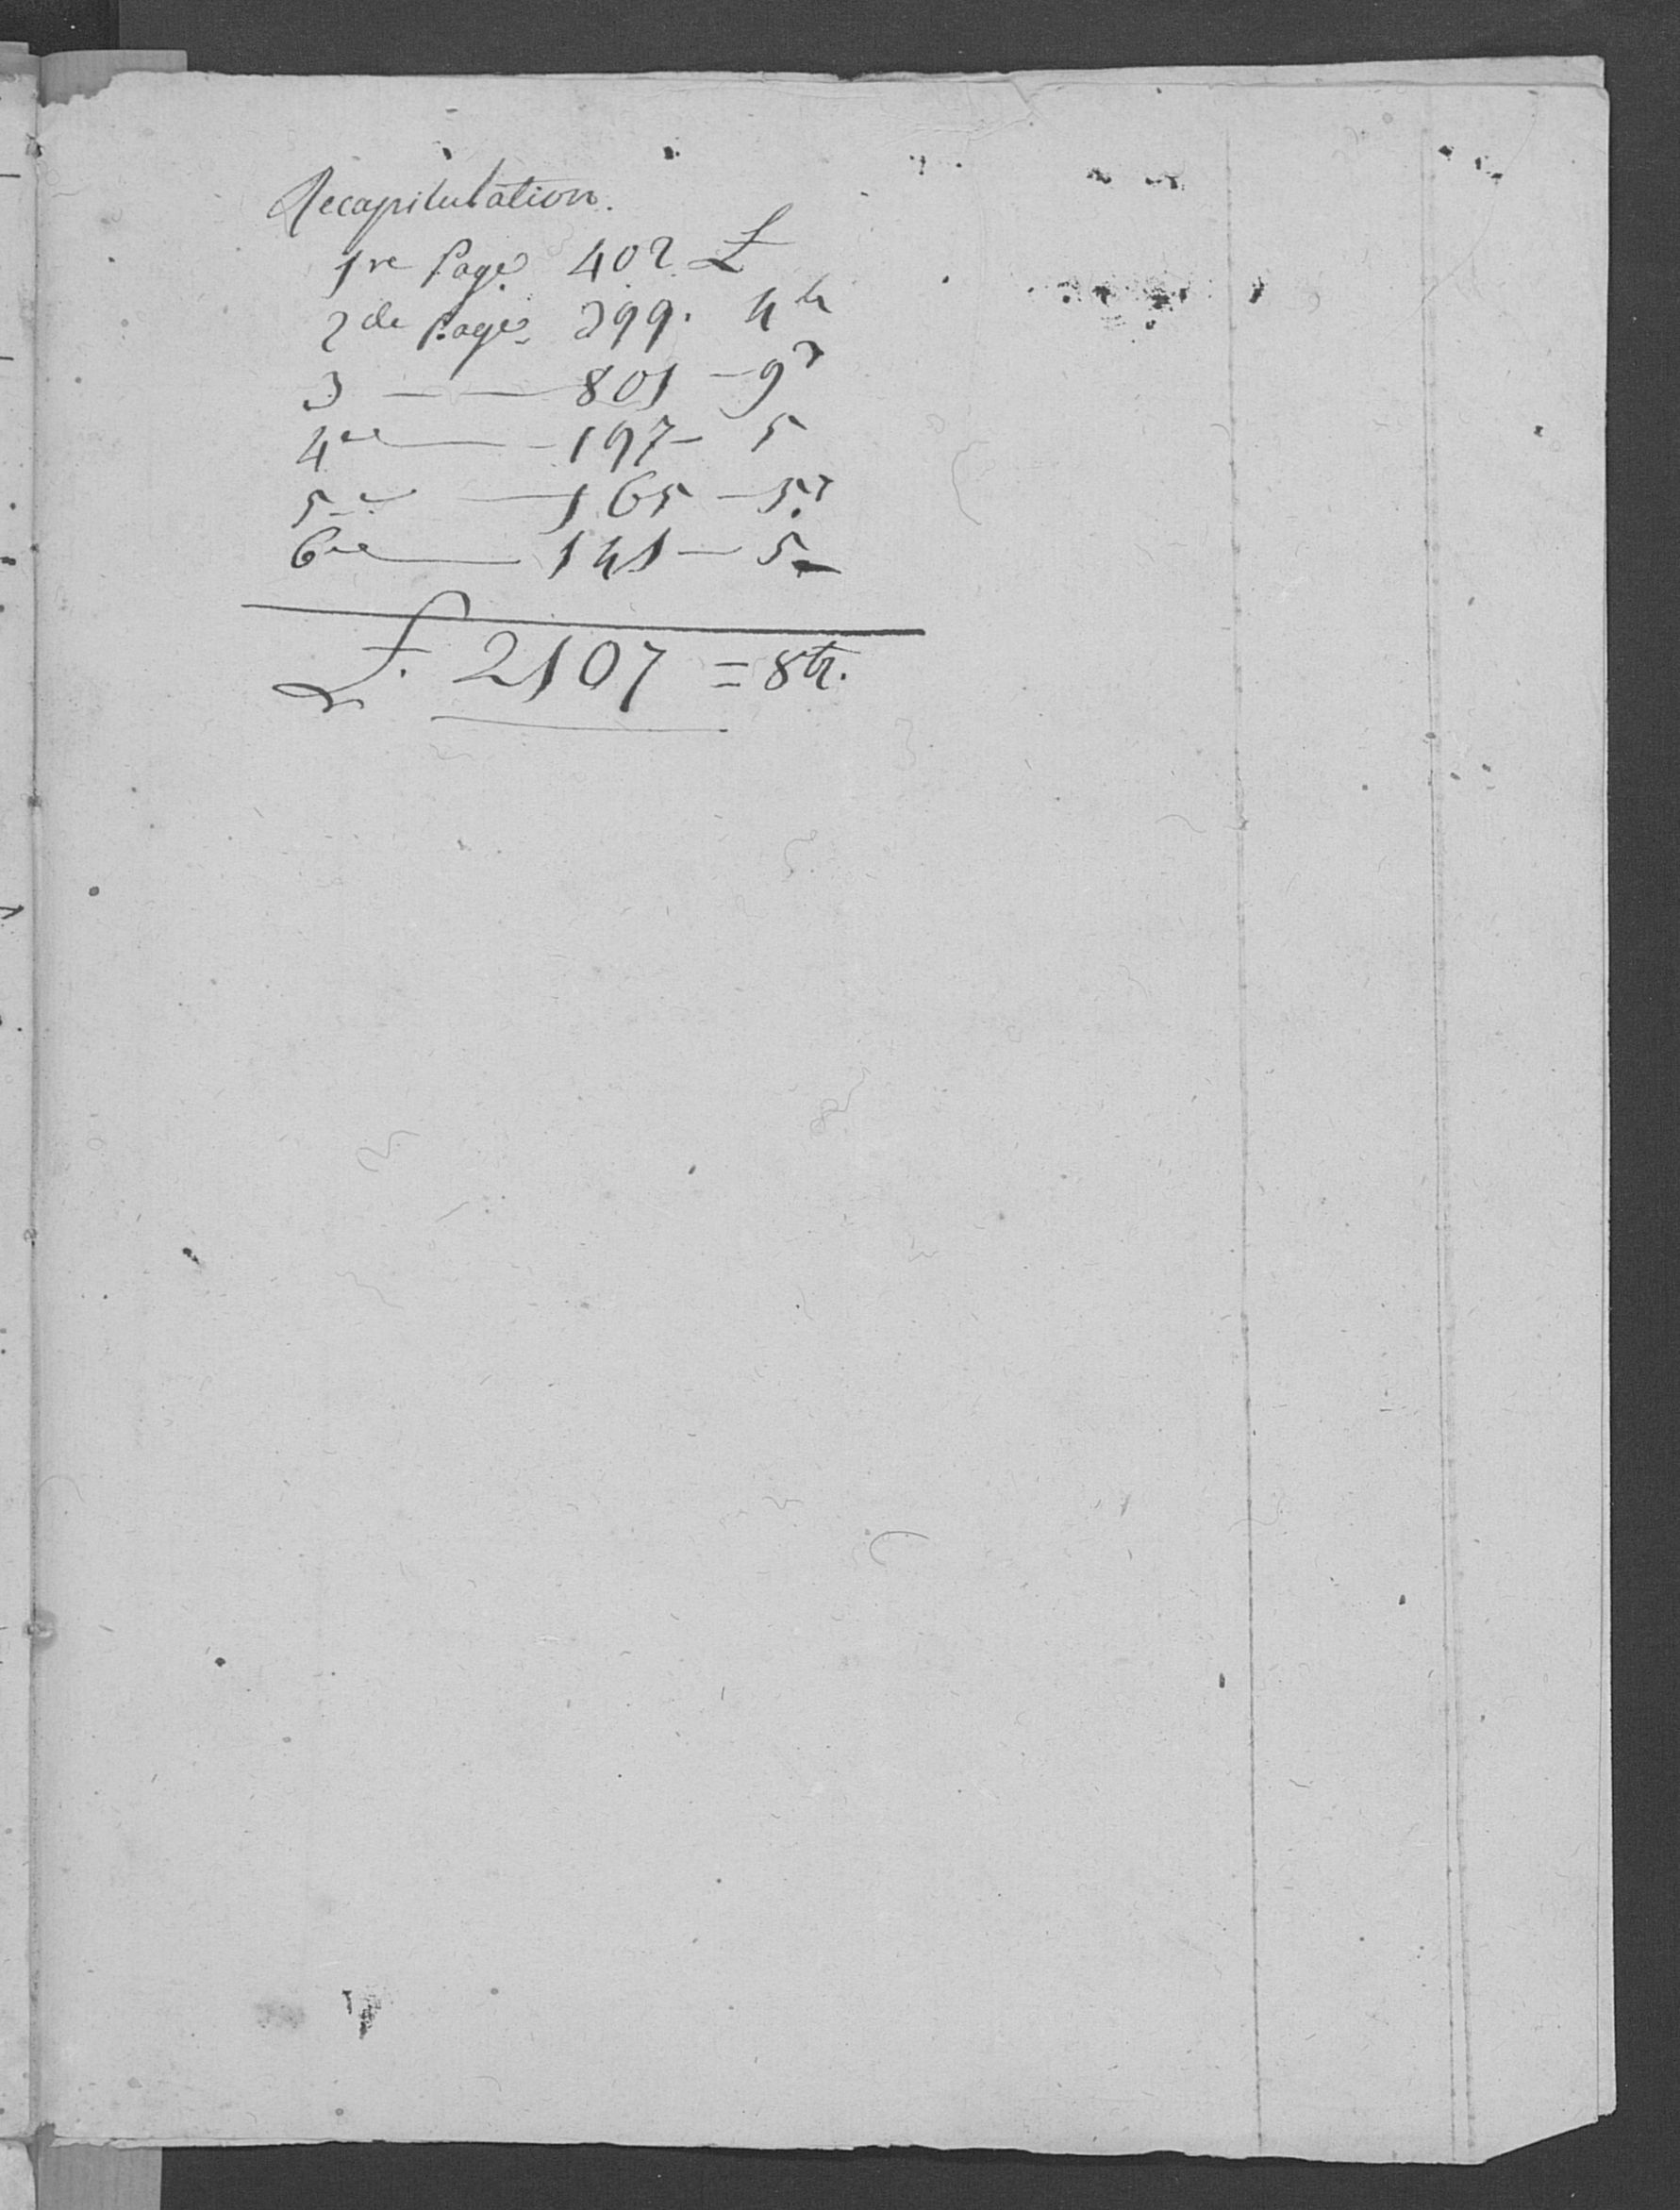 Recapitulation.
1re Page 402 £
2de Page 399. 4 h
3 — — 801 — 9
4e — 197 — 5
5e — 165 — 5
6e — 141 — 5
£. 2107 = 8 h.